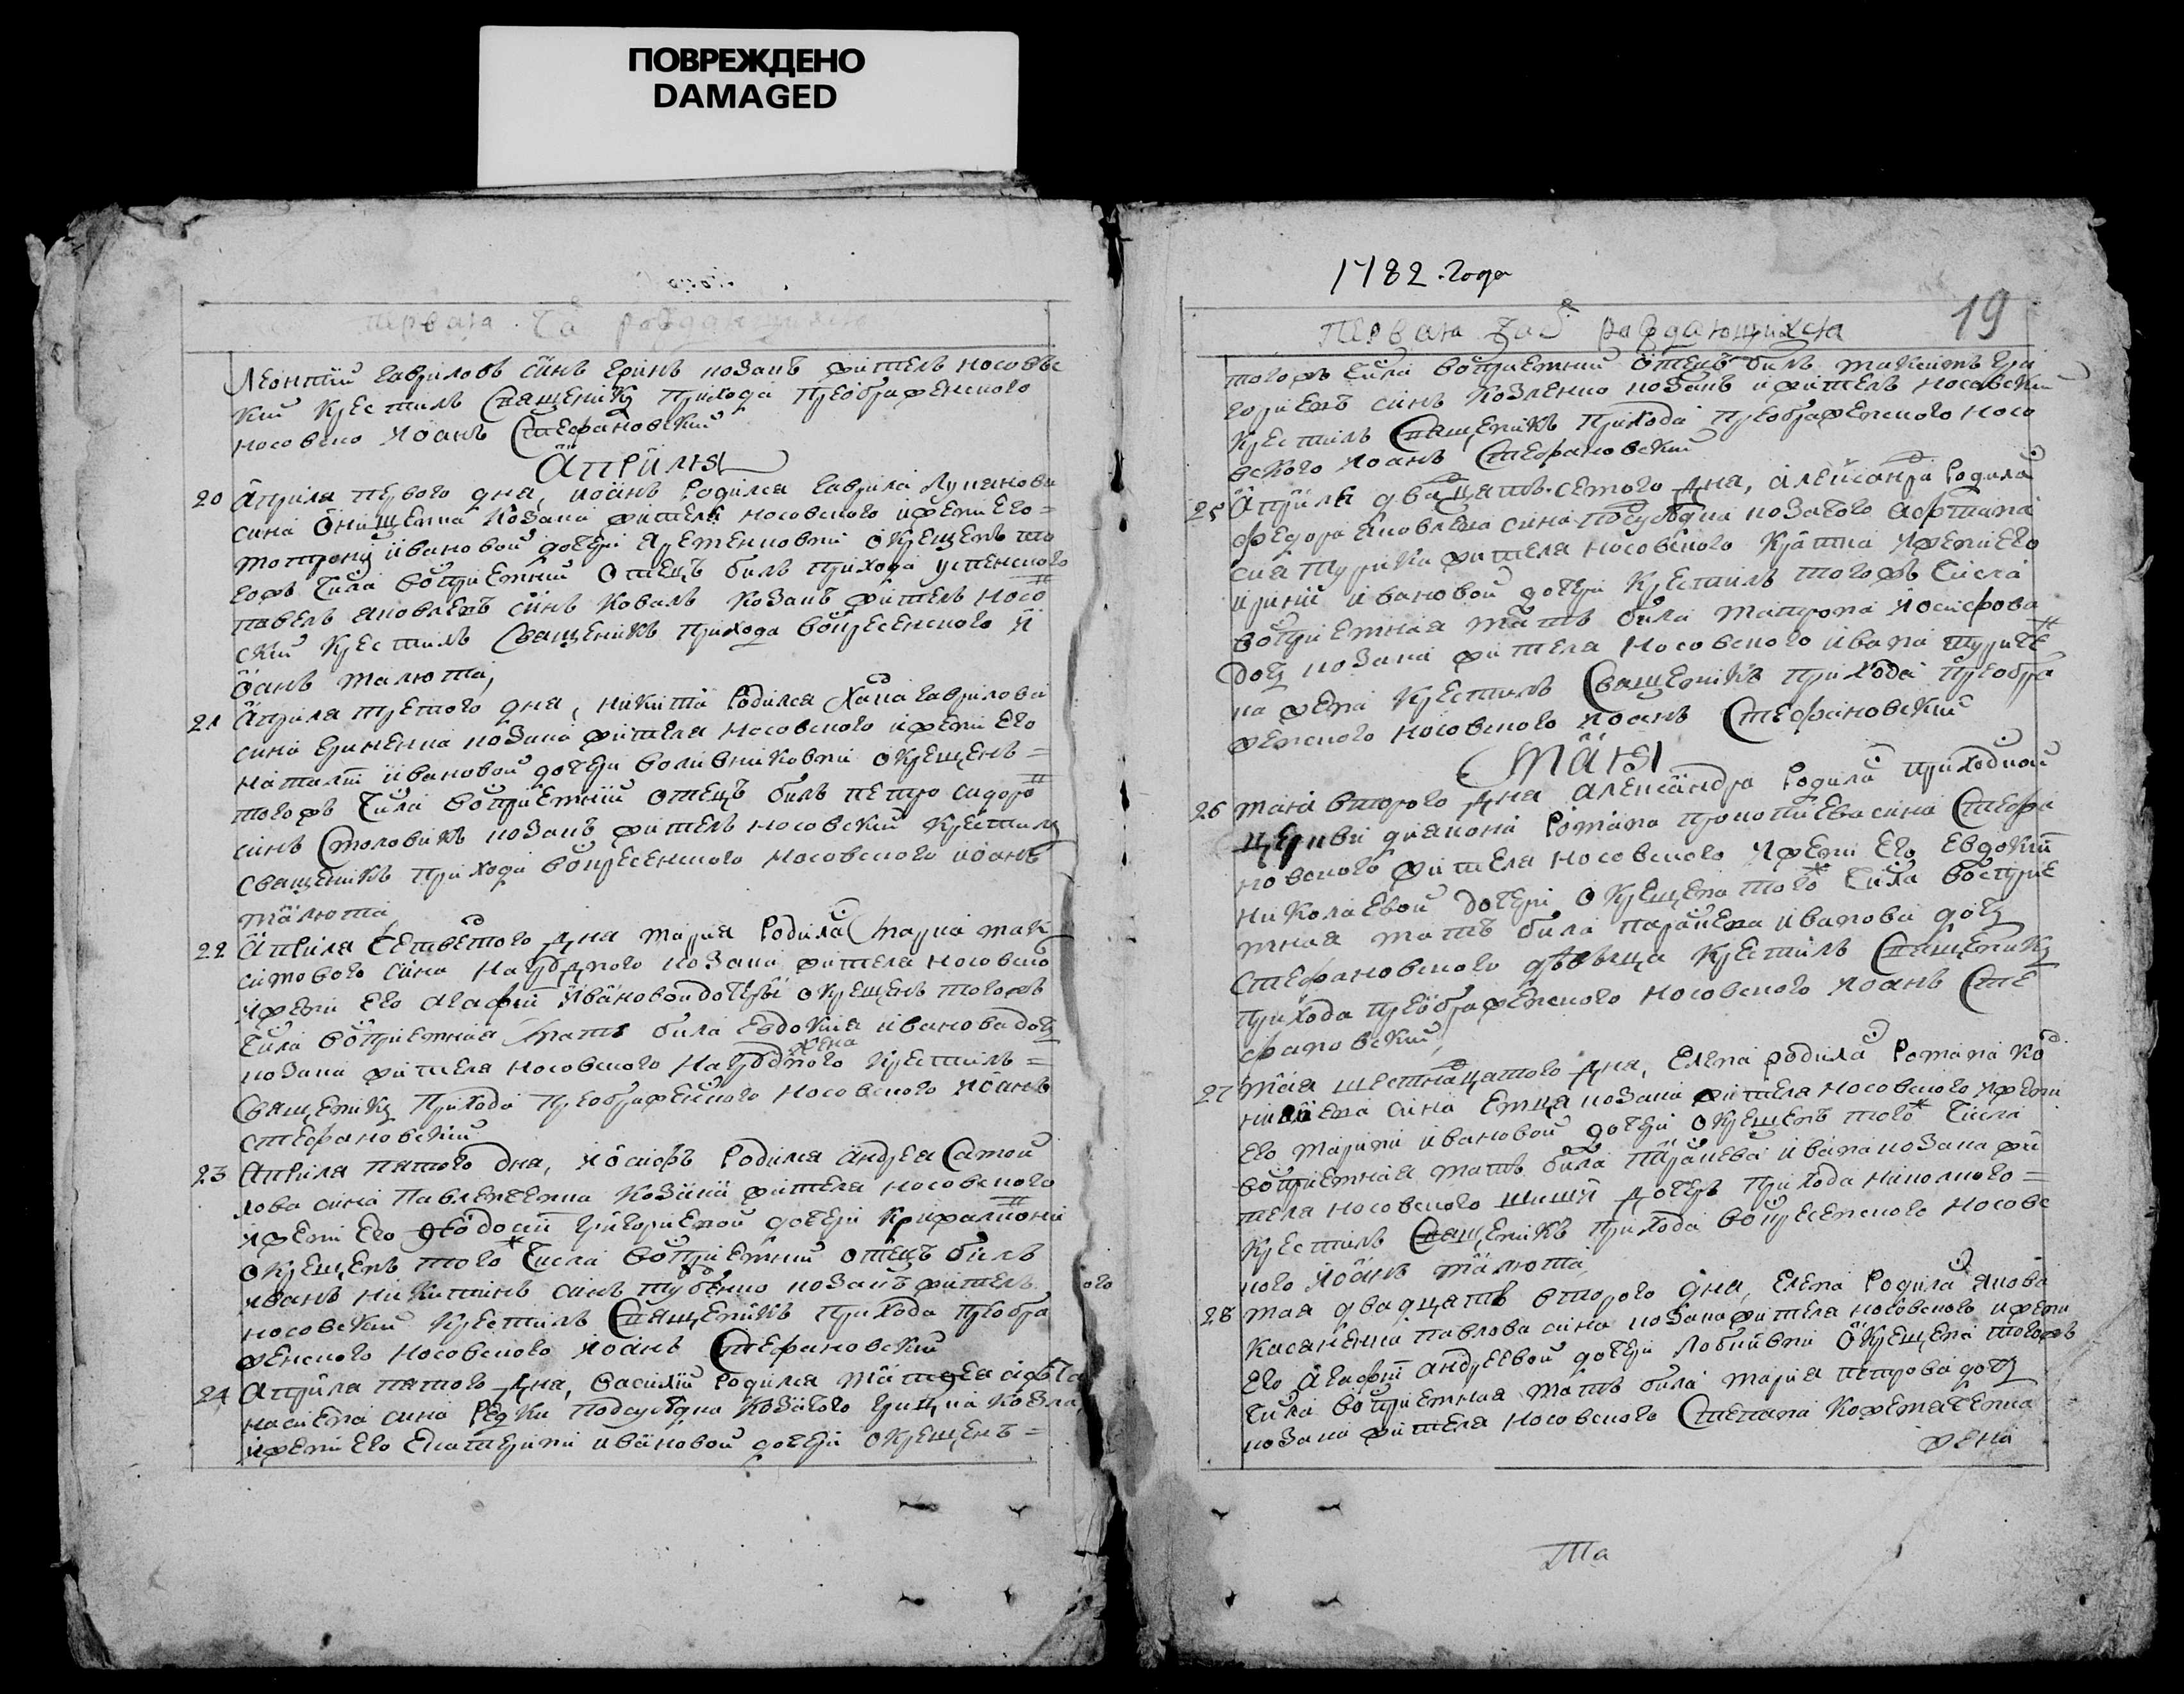 ПОВРЕЖДЕНО
DAMAGED
первая ча рождающихся
Леонтий Гавриловъ синъ Гринъ козакъ житель носовъс
кий крестилъ Священикъ прихода преображенского
носовско Иоанъ Стефановский
Априля
20 Априля первого дня, иоанъ Родился Гаврила Лукянова
сина Онищенка козака жителя носовского ижени Его =
мотрони ивановой дочери Яременковни окрещенъ то
гожъ Чила воприемний Отецъ билъ прихода успенского
павелъ яковлевъ синъ Коваль козакъ житель носо
ский крестилъ Священикъ прихода вокресенского И
оанъ малюта,
21 Априля третого дня, никита Родился Гаврилова
сина Гриненка козака жителя носовского ижени Его
наталии ивановой дочери окрещенъ =
тогожъ Чила воприемний отецъ билъ петро сидоро
синъ Столовикъ козакъ житель носовский крестилъ
Священикъ прихода вокресенского носовского иоанъ
малюта,
22 Априля Четветого дня мария Родила марка мак
симового сина козака жителя носовско
ижени Его агафии Ивановой дочери окрещенъ тогожъ
Чила воприемная мать била Евдокия иванова доч
жена
козака жителя носовского крестилъ =
Священикъ прихода преображенского носовского Иоанъ
стефановский
23 Априля пятого дня, иосифъ Родился андрея Самой
лова сина Павленченка козака жителя носовского
ижени Его феодосии григориевой дочери
окрещенъ того* Числа воприемний отецъ билъ
иванъ никитинъ синъ козакъ житель
носовский крестилъ Священикъ прихода преобра
женского носовского Иоанъ Стефановский
24 Априля пятого дня, василий Родился
сина Редки подсусѣдка козачого
ижени Его Екатерини ивановой дочери окрещенъ =
ого
1782. Года
19
первая ча рождающихся
тогожъ Чила воприемний отецъ билъ максимъ гри
гориевъ синъ Козленко козакъ и житель носовский
крестилъ Священикъ прихода преображенского носо
вского Иоанъ Стефановский
25 Априля двацать семого дня, алеѯандра Родила
федора яковлева сина подсусѣдка козачого
жителя носовского ижени Его
ирини ивановой дочери крестилъ тогожъ Числа
воприемная мать била матрона иосифова
доч козака жителя носовского ивана
ка жена крестилъ Священикъ прихода преобра
женского носовского Иоанъ Стефановский
Мая
26 мая второго дня алеѯандра Родила приходной
церкви диякона Романа прокопиева сина Стефа
новского жителя носовского ижени Его Евдокии
николаевой дочери окрещена того* Чила воспрые
мная мать била параскева иванова доч
Стефановского дѣвица крестилъ Священикъ
прихода преображенского носовского Иоанъ Сте
фановский,
27 мая шестнацатого дня, Елена родила Романа ко
сина козака жителя носовского ижени
Его марини ивановой дочери окрещенъ того* Числа
воприемная мать била параскева ивана козака жи
теля носовского дочерь прихода николного =
крестилъ Священикъ прихода вокресенского носовс
кого Иоанъ малюта,
28 мая двадцать второго дня, Елена Родила якова
Касаненка павлова сина козака жителя носовского ижени
Его агафии андреевой дочери окрещена тогожъ
Чила воприемная мать била мария петрова доч
козака жителя носовского Степана
жена
Ма